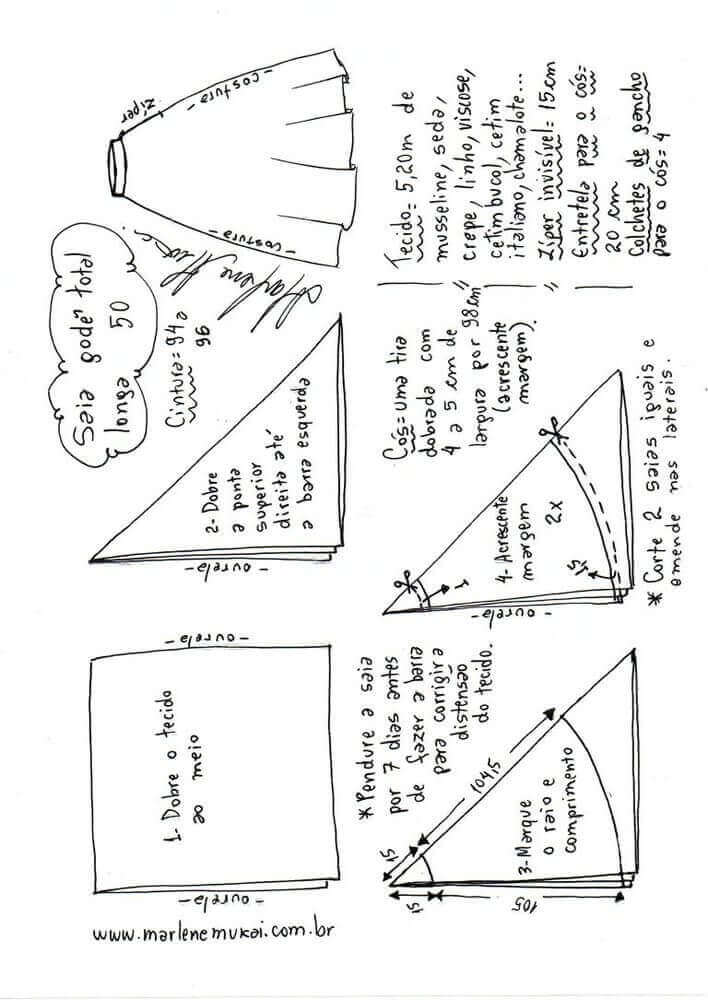 Saia godê total
longa 50
Cintura = 94 a
96
Marlene Mukai
- costura -
zíper
- costura -
1- Dobre o tecido
ao meio
- ourela -
- ourela -
2- Dobre
a ponta
superior
direita até
a barra esquerda
- ourela -
www.marlenemukai.com.br
* Pendure a saia
por 7 dias antes
de fazer a barra
para corrigir a
distensão
do tecido.
3- Marque
o raio e
comprimento
15
104,5
15
105
Cós = Uma tira
dobrada com
4 a 5 cm de
largura por 98 cm
(acrescente
margem).
4- Acrescente
margem
2x
1
1,5
- ourela -
* Corte 2 saias iguais e
emende nas laterais.
Tecido = 5,20m de
musseline, seda,
crepe, linho, viscose,
cetim bucol, cetim
italiano, chamalote...
Zíper invisível = 15cm
Entretela para o cós =
20 cm
Colchetes de gancho
para o cós = 4